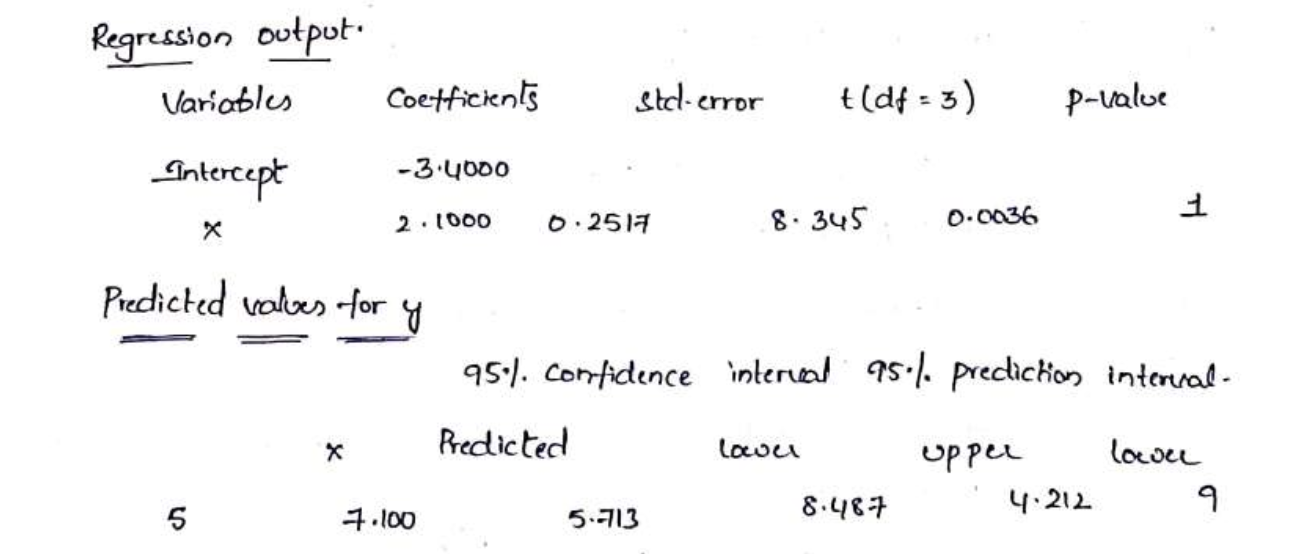 Regression output.
Variables Coefficients std.error t(df = 3) p-value
Intercept -3.4000
x 2.1000 0.2517 8.345 0.0036 1
Predicted values for y
95%. confidence interval 95%. prediction interval.
x Predicted lower upper lower
5 7.100 5.713 8.487 4.212 9